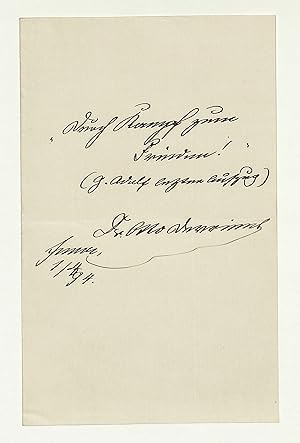 "Durch Kampf zum
Frieden!"
(G. Adolf letzter Aufzug)
Dr. Otto Devrient
Jena,
1/4 94.